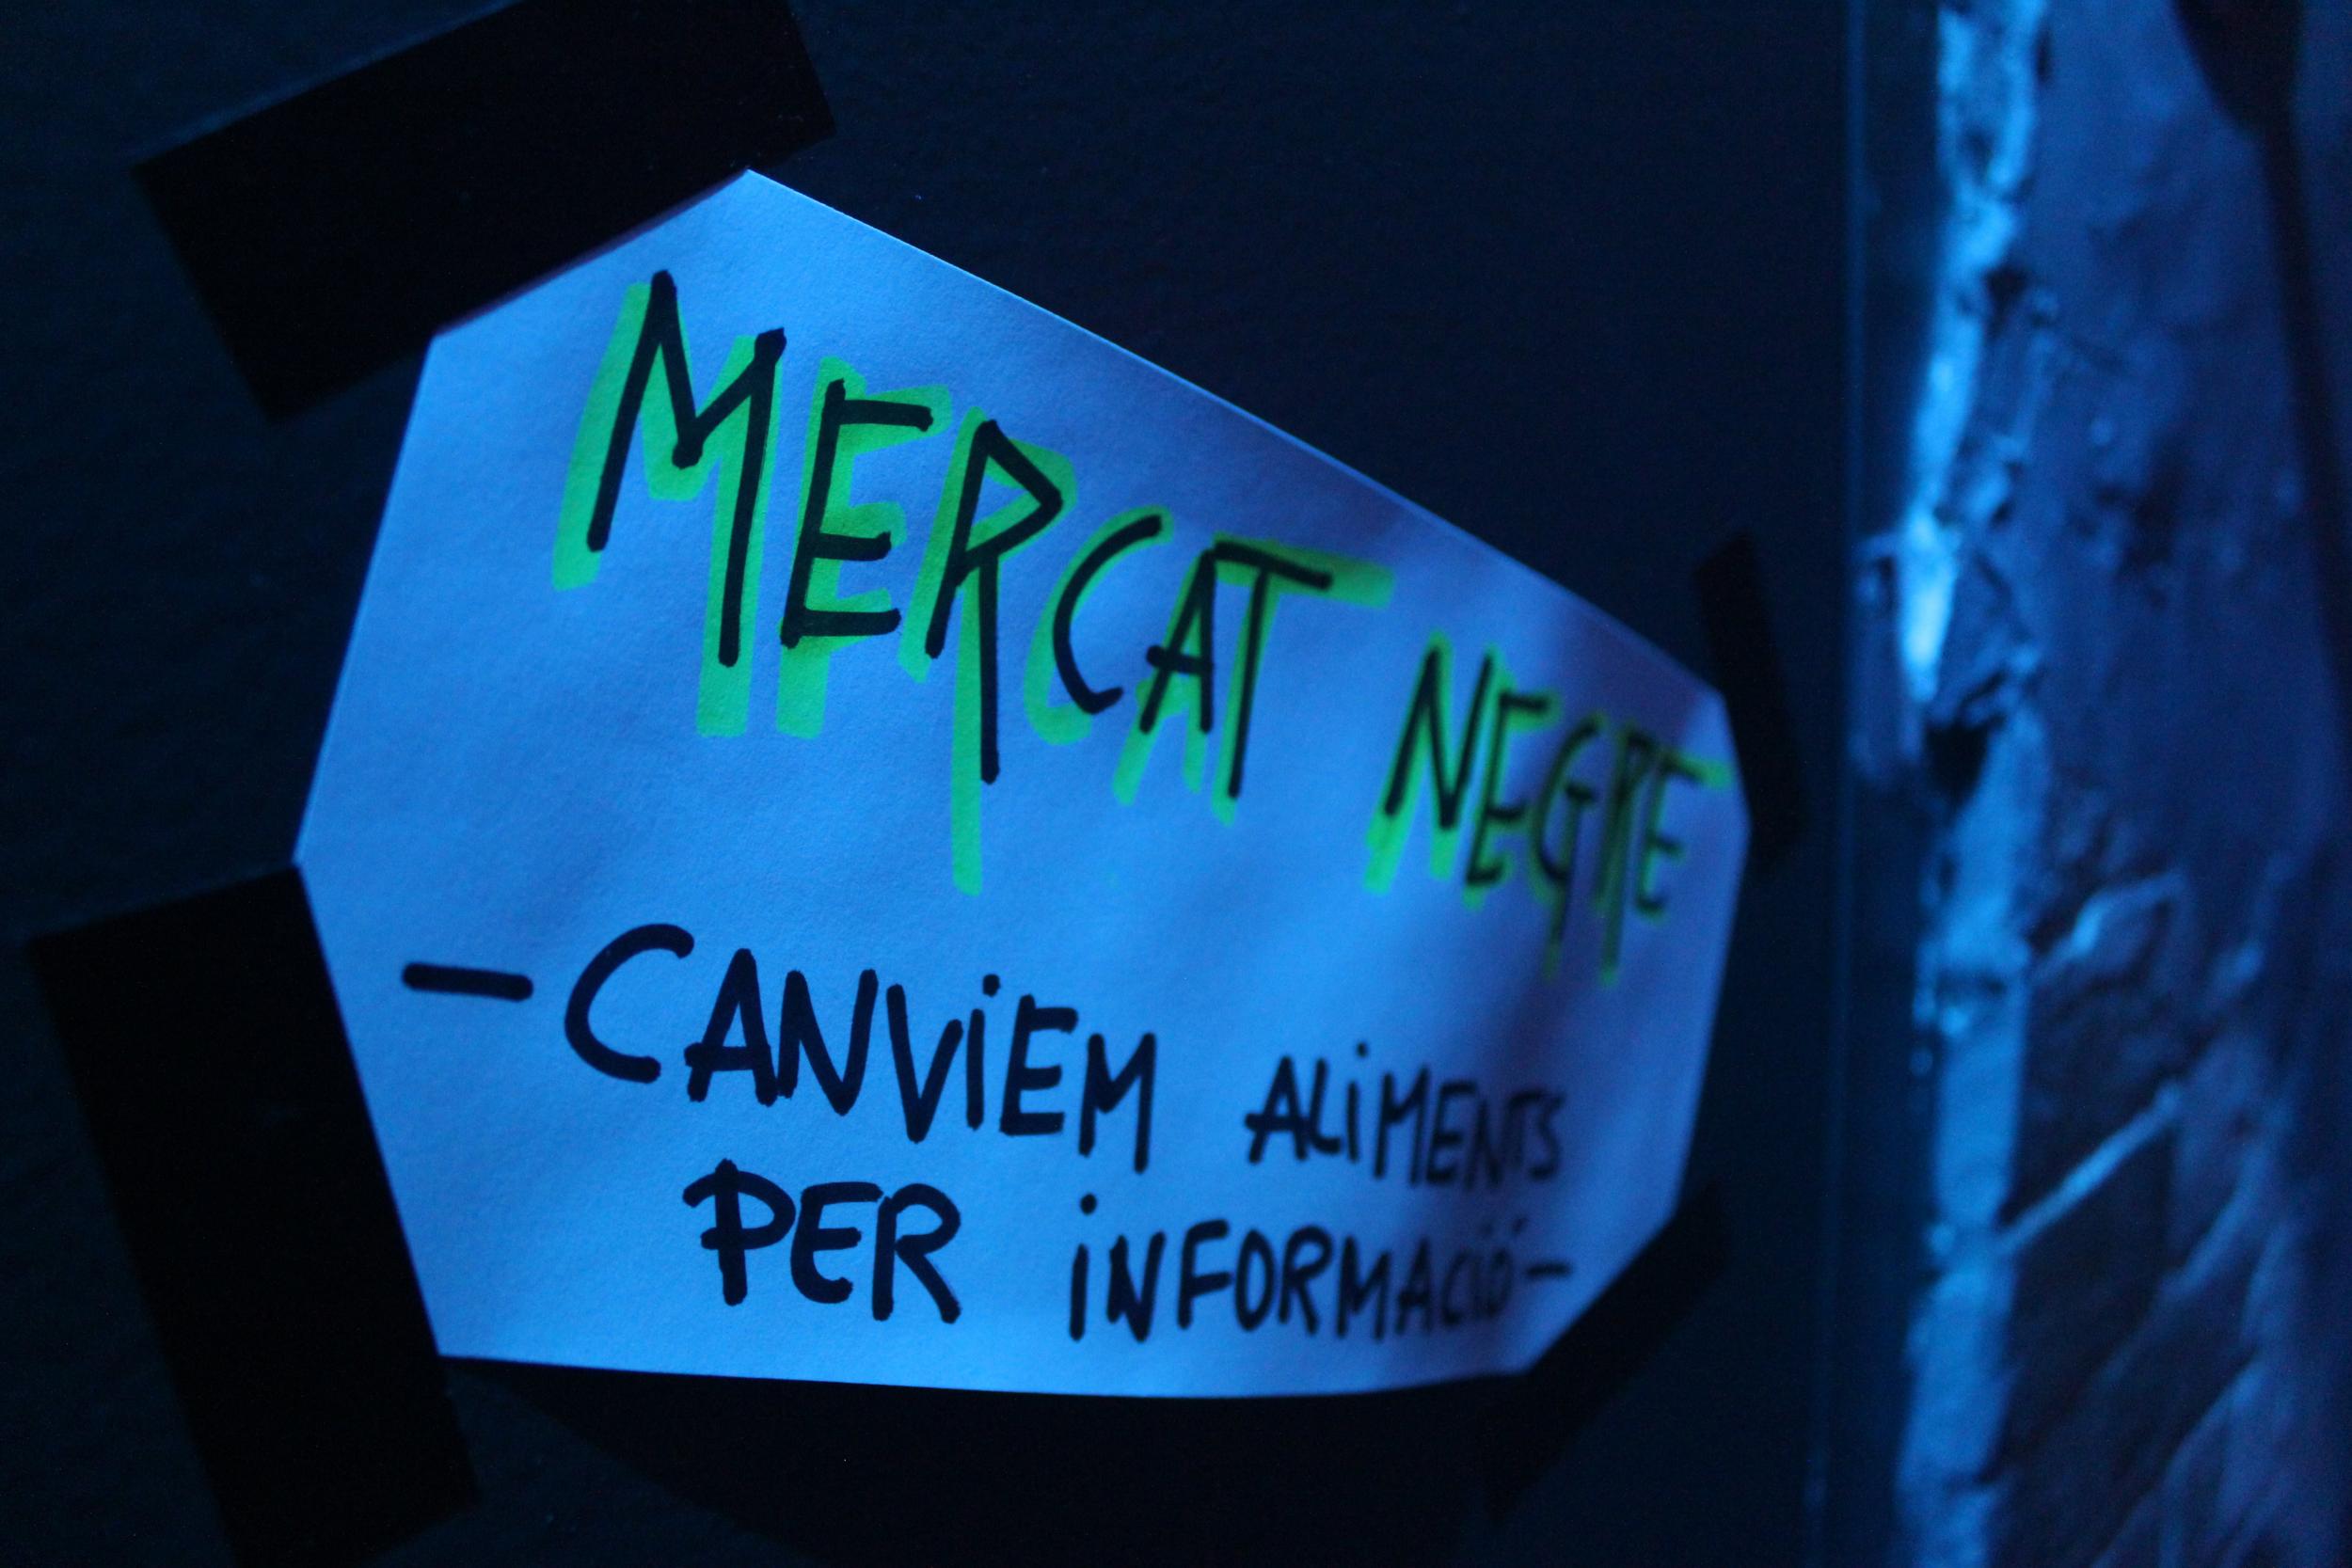 MERCAT NEGRE
- CANVIEM ALIMENTS
PER INFORMACIÓ -